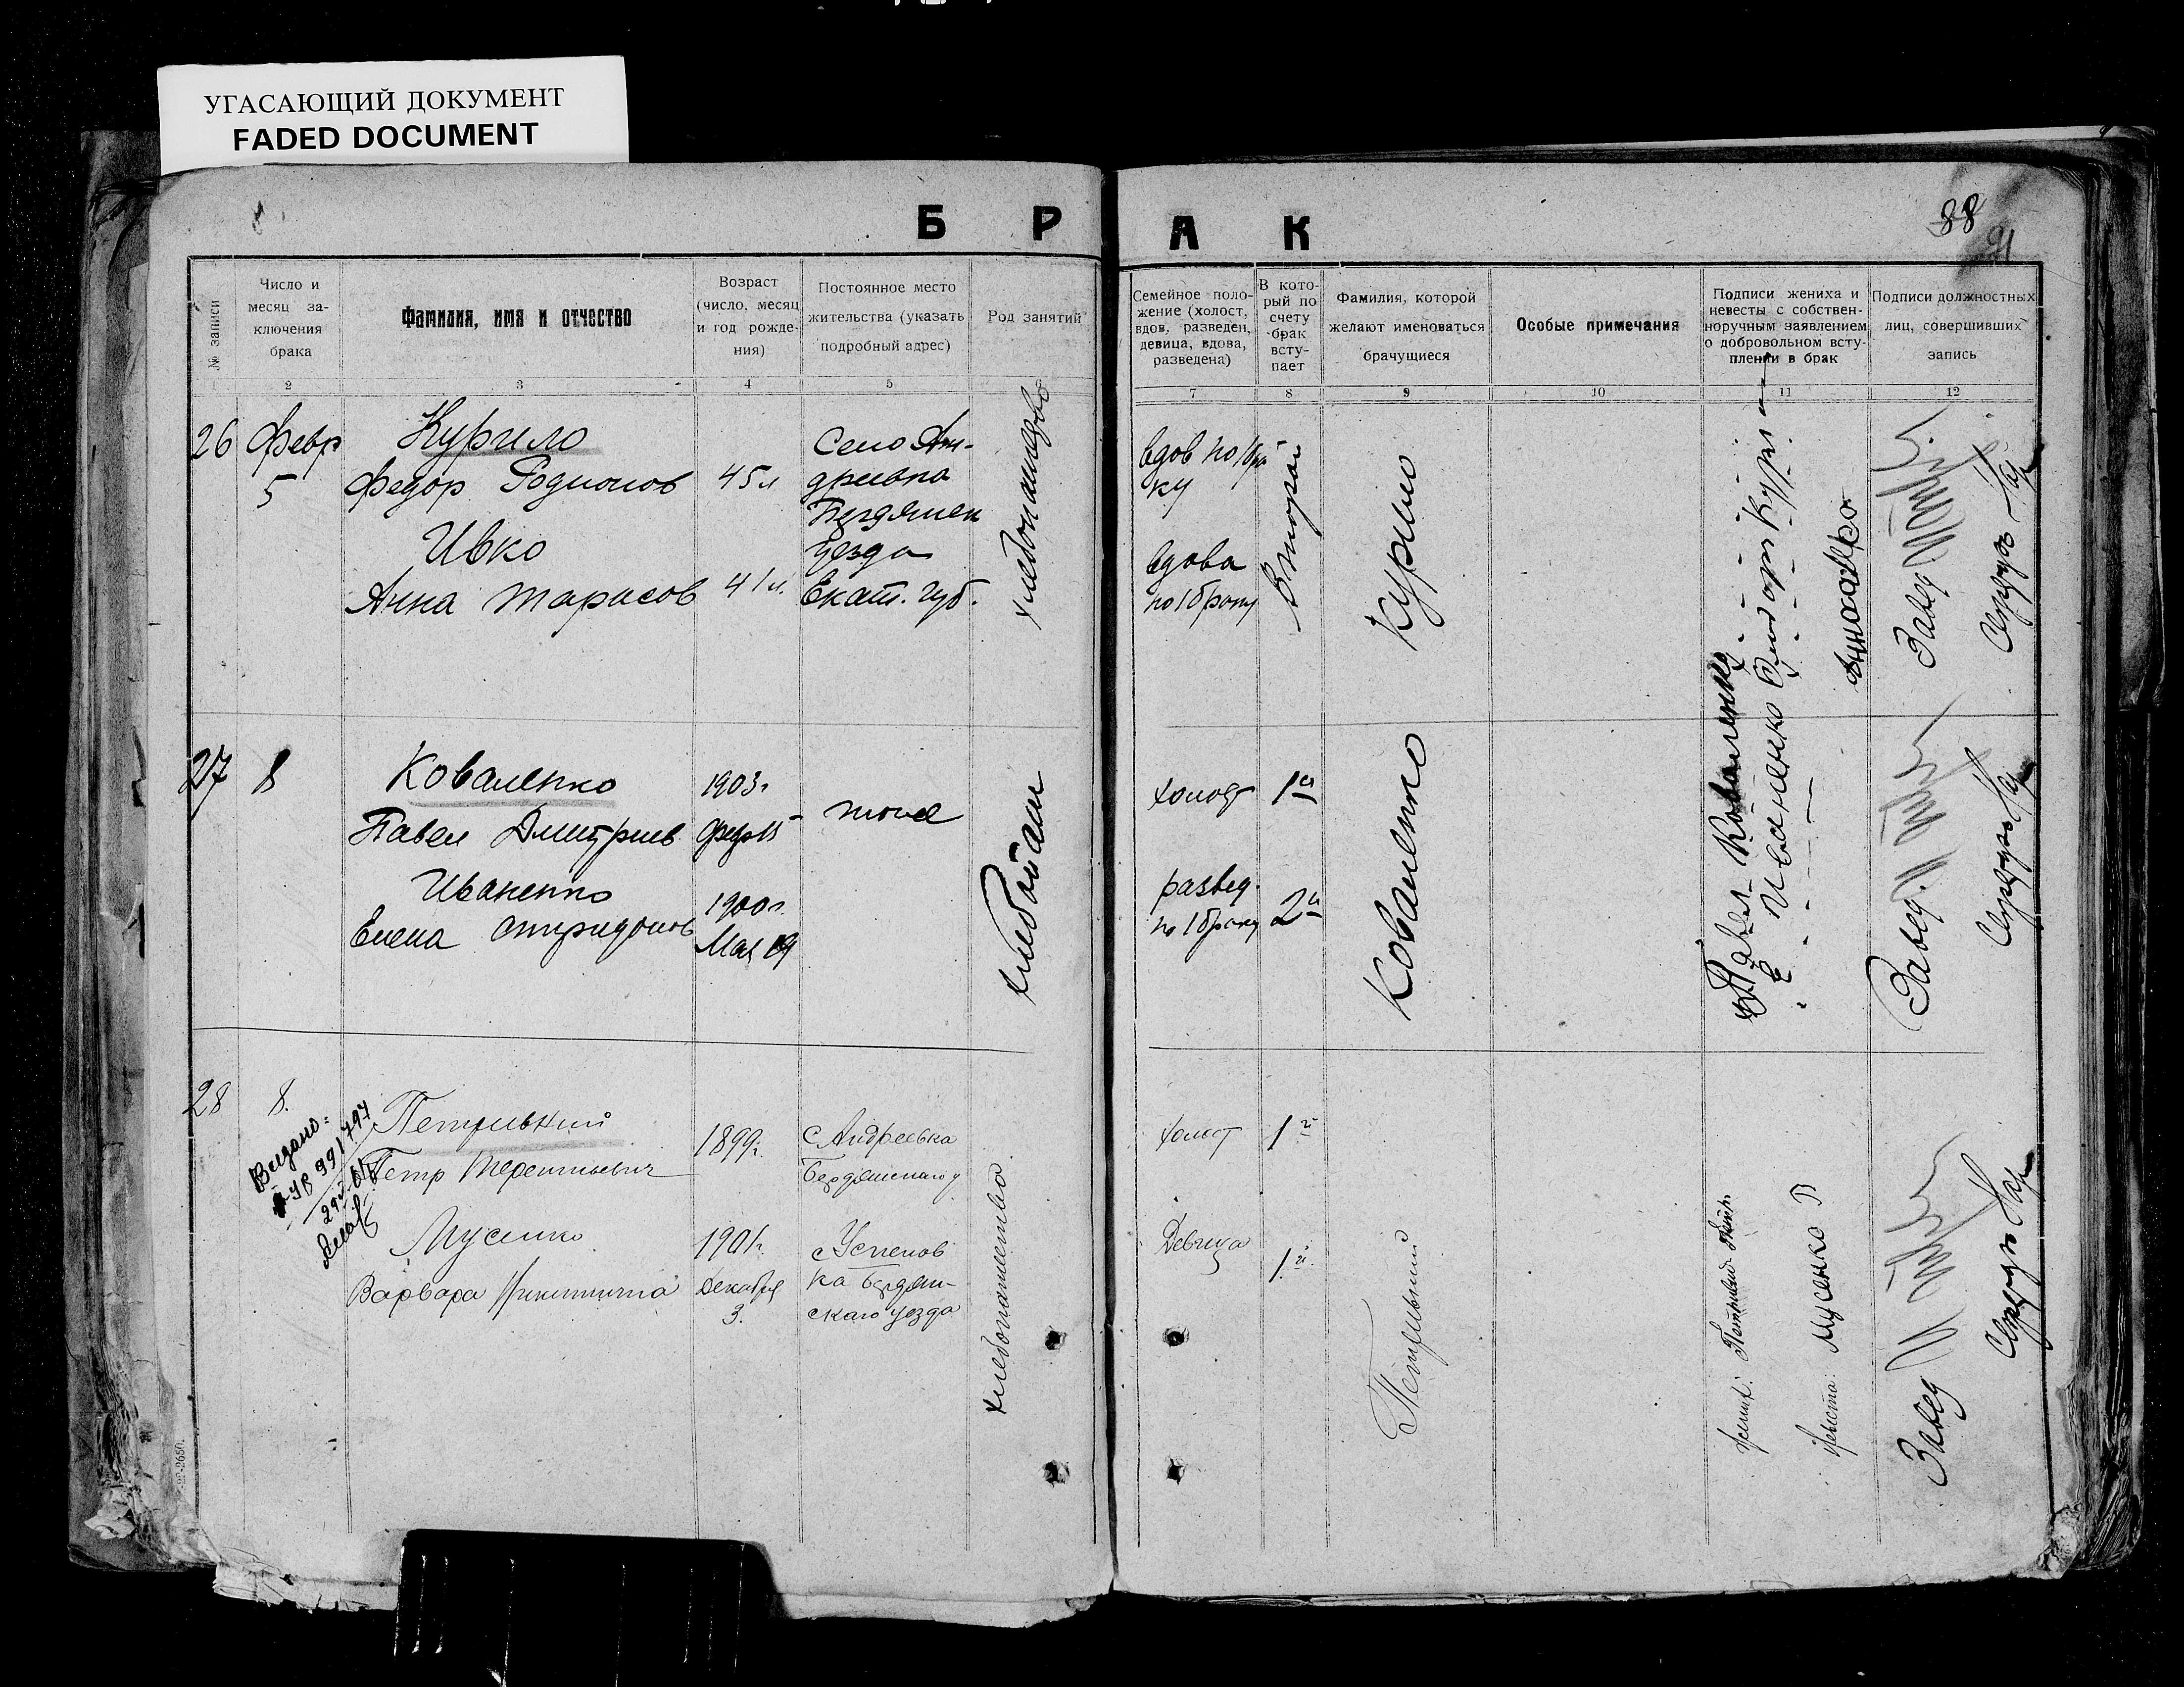 УГАСАЮЩИЙ ДОКУМЕНТ
FADED DOCUMENT
Б Р А К
88
91
№ записи
Число и
месяц за-
ключения
брака
Фамилия, имя и отчество
Возраст
(число, месяц
и год рожде-
ния)
Постоянное место
жительства (указать
подробный адрес)
Род занятий
Семейное поло-
жение (холост,
вдов, разведен,
девица, вдова,
разведена)
В кото-
рый по
счету
брак
всту-
пает
Фамилия, которой
желают именоваться
брачущиеся
Особые примечания
Подписи жениха и
невесты с собствен-
норучным заявлением
о добровольном всту-
плении в брак
Подписи должностных
лиц, совершивших
запись
1 2 3 4 5 6 7 8 9 10 11 12
26
Февр
5
Курило
Федор Родионов
Ивко
Анна Тарасов
45 л
41 л.
Село Ан-
дреевка
Бердянск
уезда
Екат. губ.
хлебопашество
вдова
по 1 браку
Второй
Курило
Завед
27
8
Коваленко
Павел Дмитриев
Иваненко
Елена Спиридонов
1903 г
Фев 15
1900 г.
Мая 19
тоже
хлебопаш
холост
1й
развед.
по 1 браку
2й
Коваленко
Павел Коваленко
Е Иваненко
Завед.
28
8.
Выдано:
Петривний
Петр Терентьевич
Мусенко
Варвара Никитична
1899 г.
1901 г.
Декабря
3.
с Андреевка
Бердянского у
с Успенов
ка Бердян-
ского уезда
хлебопашество
холост
1й
Девица
1й.
Петривний
Жених:
Невеста: Мусенко В
Завед